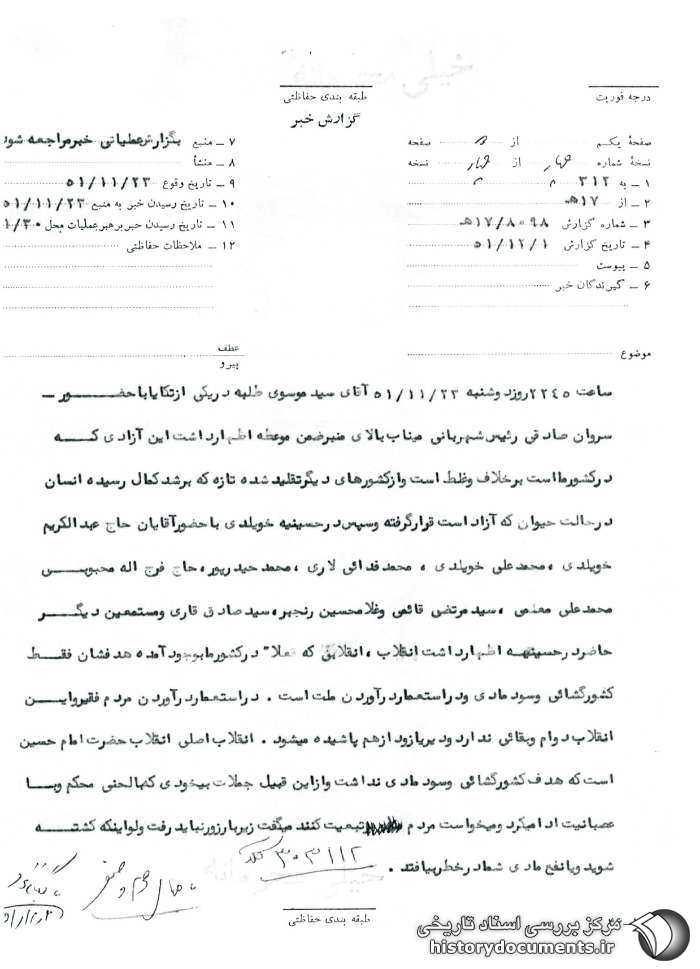 درجه فوریت
طبقه بندی حفاظتی
گزارش خبر
صفحهٔ یکم از صفحه
نسخهٔ شماره چهار از چهار نسخه
۱ ـ به ۳۱۲
۲ ـ از ۱۷هـ
۳ ـ شماره گزارش ۱۷/۸۰۹۸هـ
۴ ـ تاریخ گزارش ۵۱/۱۲/۱
۵ ـ پیوست
۶ ـ گیرندگان خبر
۷ ـ منبع بگزارش عملیاتی خبر مراجعه شود
۸ ـ منشأ
۹ ـ تاریخ وقوع ۵۱/۱۱/۲۳
۱۰ ـ تاریخ رسیدن خبر به منبع ۵۱/۱۱/۲۳
۱۱ ـ تاریخ رسیدن خبر برهبر عملیات محل ۱/۳۰
۱۲ ـ ملاحظات حفاظتی
موضوع
عطف
پیرو
ساعت ۲۲۴۵ روز دوشنبه ۵۱/۱۱/۲۳ آقای سید موسوی طلبه در یکی از تکایا با حضور ـ
سروان صادقی رئیس شهربانی میناب بالای منبر ضمن موعظه اظهار داشت این آزادی که
در کشور ما است بر خلاف وغلط است و از کشورهای دیگر تقلید شده تازه که برشد کمال رسیده انسان
در حالت حیوان که آزاد است قرار گرفته وسپس در حسینیه خویلدی با حضور آقایان حاج عبدالکریم
خویلدی ، محمدعلی خویلدی ، محمد فدائی لاری ، محمد حیدرپور ، حاج فرج اله محبوبی
محمدعلی معلمی ، سید مرتضی قائمی وغلامحسین رنجبر ، سید صادق قاری ومستمعین دیگر
حاضر در حسینیه اظهار داشت انقلاب ، انقلابی که فعلا" در کشور ما بوجود آمده هدفشان فقط
کشورگشائی وسود مادی ودر استعمار در آوردن ملت است . در استعمار در آوردن مردم فقیر و این
انقلاب دوام وبقائی ندارد ودیر یا زود از هم پاشیده میشود . انقلاب اصلی انقلاب حضرت امام حسین
است که هدف کشورگشائی وسود مادی نداشت و از این قبیل جملات بیخودی که با لحنی محکم وبا
عصبانیت ادا میکرد ومیخواست مردم تبعیت کنند میگفت زیر بار زور نباید رفت ولو اینکه کشته
شوید ویا نفع مادی شما در خطر بیافتد .
طبقه بندی حفاظتی
مرکز بررسی اسناد تاریخی
historydocuments.ir